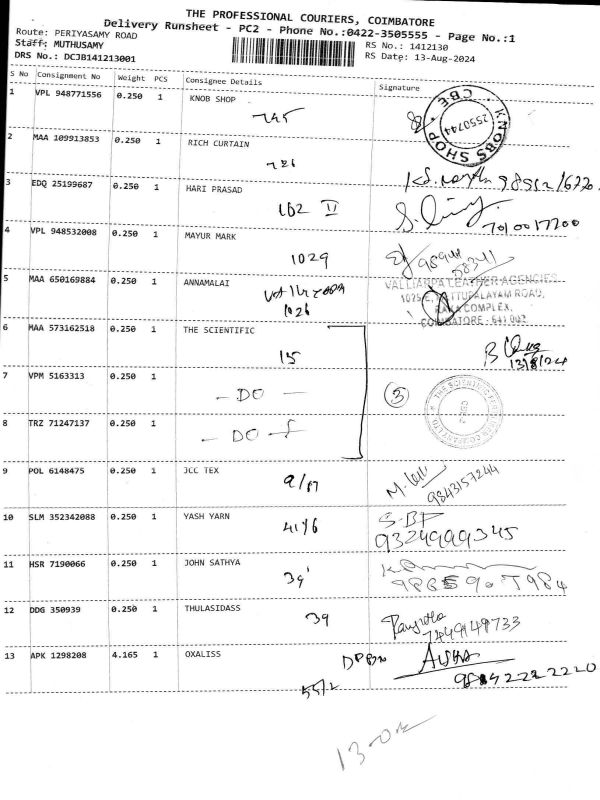 THE PROFESSIONAL COURIERS, COIMBATORE
Delivery Runsheet - PC2 - Phone No.:0422-3505555 - Page No.:1
Route: PERIYASAMY ROAD
Staff: MUTHUSAMY
DRS No.: DCJB141213001
RS No.: 1412130
RS Date: 13-Aug-2024
S No Consignment No Weight PCS Consignee Details Signature
1 VPL 948771556 0.250 1 KNOB SHOP
KNOBS SHOP CBE 2550744
2 MAA 109913853 0.250 1 RICH CURTAIN
726
3 EDQ 25199687 0.250 1 HARI PRASAD
102 II
7010017700
4 VPL 948532008 0.250 1 MAYUR MARK
1029
5 MAA 650169884 0.250 1 ANNAMALAI
1026
VALLIAPPA LEATHER AGENCIES
COIMBATORE - 641 002
6 MAA 573162518 0.250 1 THE SCIENTIFIC
15
13/8/24
7 VPM 5163313 0.250 1
- DO -
3
8 TRZ 71247137 0.250 1
- DO -
9 POL 6148475 0.250 1 JCC TEX
9843157244
10 SLM 352342088 0.250 1 YASH YARN
41/6
S-BP
9324999345
11 HSR 7190066 0.250 1 JOHN SATHYA
39
12 DDG 350939 0.250 1 THULASIDASS
39
7449149733
13 APK 1298208 4.165 1 OXALISS
55/2